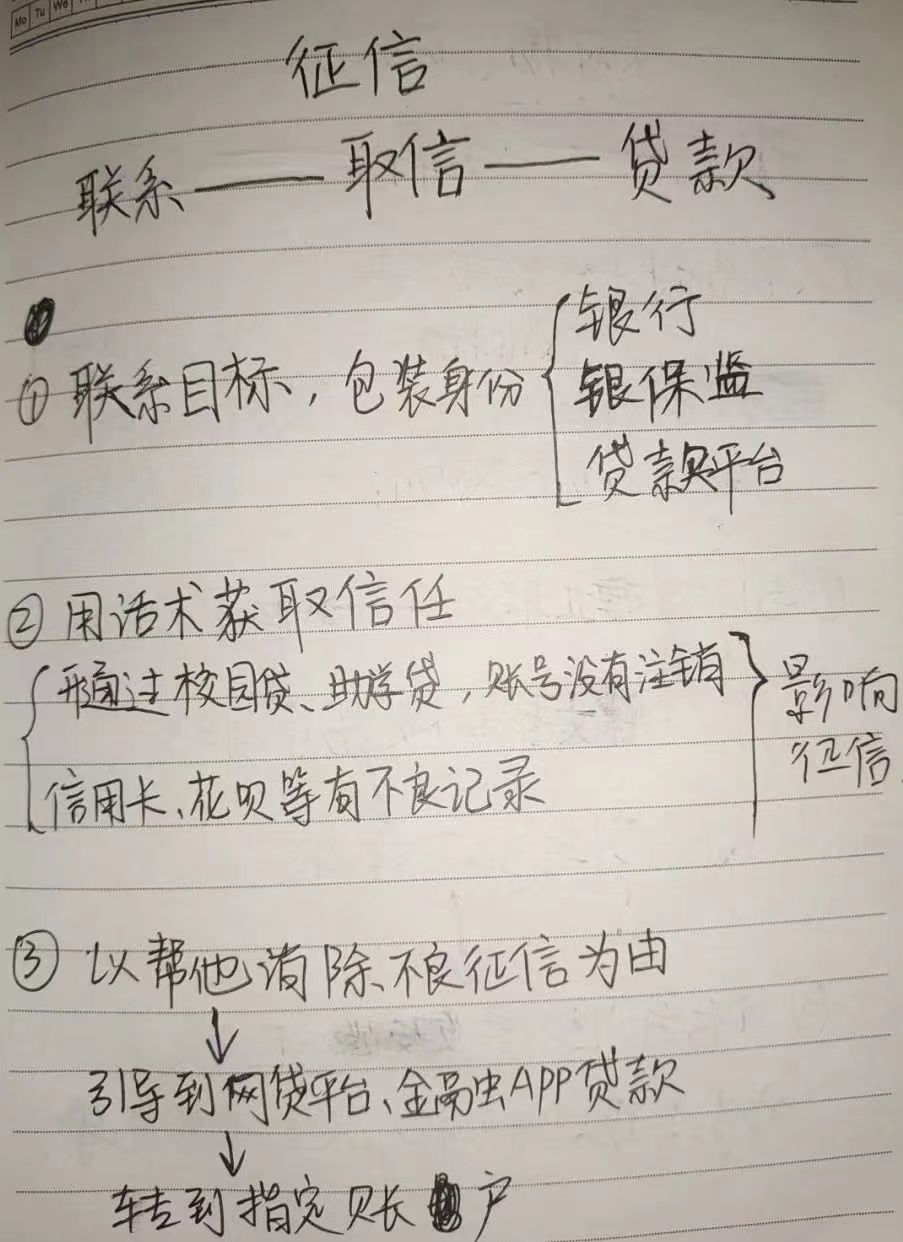 Mo Tu We
征信
联系——取信——贷款
① 联系目标，包装身份
银行
银保监
贷款平台
② 用话术获取信任
通过校园贷、助学贷，账号没有注销
信用卡、花呗等有不良记录
影响
征信
③ 以帮他消除不良征信为由
↓
引导到网贷平台、金融APP贷款
↓
转到指定账户